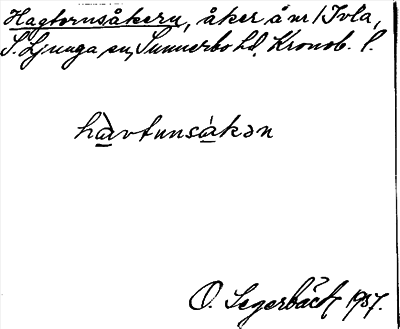 Hagtornsåkern, åker å nr 1 Ivla,
S. Ljunga sn, Sunnerbo hd, Kronob. l.
hàvtunsákən
O. Segerbäck 1957.